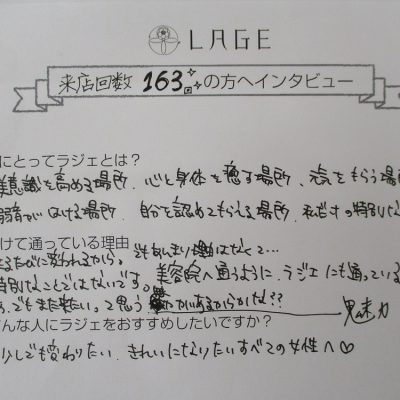 LAGE
来店回数 163回の方へインタビュー
にとってラジェとは?
美意識を高める場所、心と身体を癒す場所、元気をもらう場所
弱音がはける場所 自分を認めてもらえる場所、私だけの特別な
けて通っている理由
変われるから。でもあんまり理由はなくて…
特別なことではないです。美容院へ通うように、ラジェにも通っている
でもまた来たい。って思う があるからかな??
魅力
んな人にラジェをおすすめしたいですか?
少しでも変わりたい、きれいになりたいすべての女性へ♡